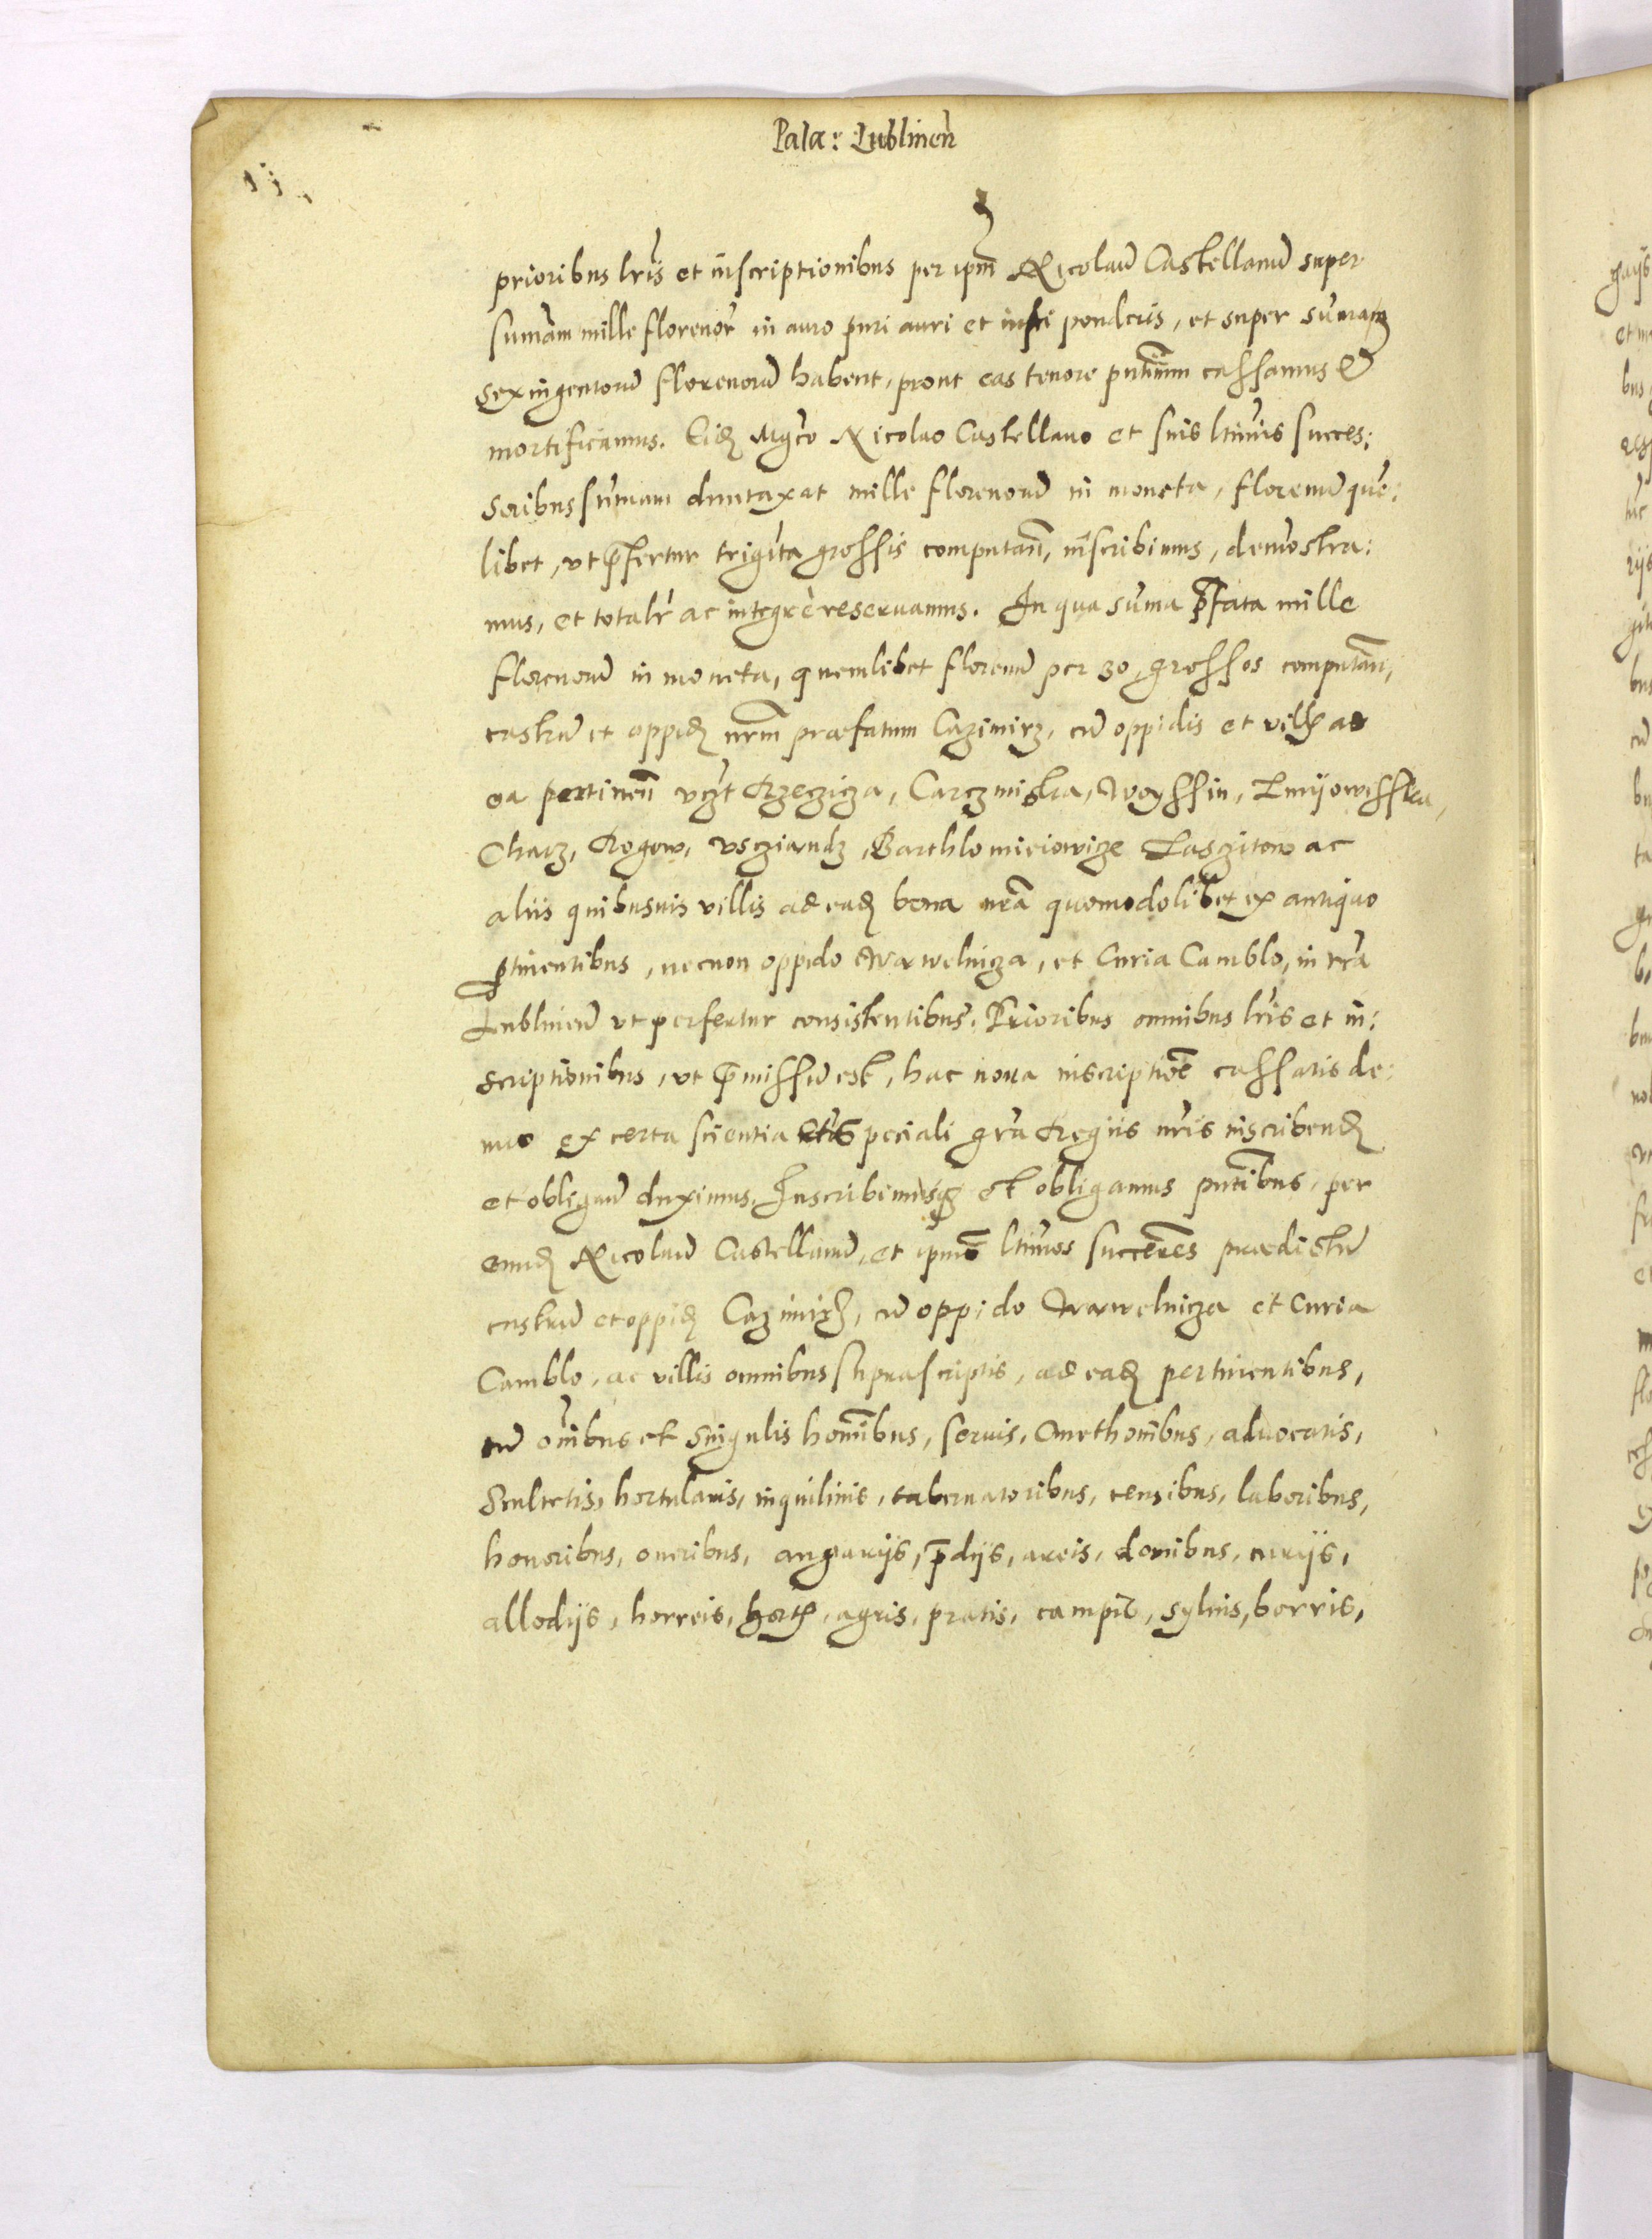 Pala: Lublinen̄
prioribus lr̄is et inscriptionibus per ipm̄ Nicolaū Castellanū super
sum̄am mille florenor̄ in auro puri auri et iusti ponderis, et super sum̄am
Sexingentorū florenorū habent, prout eas tenore pn̄tium cassamus &
mortificamus. Eidꝫ Mgco Nicolao Castellano et suis ltimis succes:
soribus sum̄am duntaxat mille florenorū in moneta, florenū quē:
libet, vt p̄fertur trigīta grossis computan̄, inscribimus, demōstra:
mus, et totalr̄ ac integrè reseruamus. In qua sum̄a p̄fata mille
florenorū in moneta, quemlibet florenū per 30 grossos computan̄,
castrū et oppidꝫ nrm̄ præfatum Cazimirz, cū oppidis et villis ad
ea pertinen̄ vczt Rzecziza, Carczmiska, Woyssin,
Charz, Rogow, Vscziandz, Barthlomieiowicze Laszitow ac
aliis quibusuis villis ad eadꝫ bona nr̄a quomodolibet ex antiquo
ꝑtinentibus, necnon oppido Wawelnicza, et Curia Camblo, in tr̄a
Lublinen̄ vt perfertur consistentibus. Prioribus omnibus lr̄is et in:
scriptionibus, vt p̄missū est, hac noua inscriptiōe cassatis de:
nuo ex certa scientia speciali gr̄a Regiis nr̄is inscribendꝫ
et obligand duximus. Inscribimusqꝫ et obligamus pn̄tibus, per
eundꝫ Nicolaū Castellanū, et ipius ltimos succēres prædictū
castrū et oppidꝫ Cazimirz, cū oppido Wawelnicza et Curia
Camblo, ac villis omnibus suprascriptis, ad eadꝫ pertinentibus,
cū oīnibus et singulis homībus, seruis, Cmethonibus, aduocatis,
Scultetis, hortulanis, inquilinis, tabernatoribus, censibus, laboribus,
honoribus, oneribus, angariijs, p̄dijs, areis, domibus, curijs,
allodijs, horreis, hortis, agris, pratis, campis, syluis, borris,